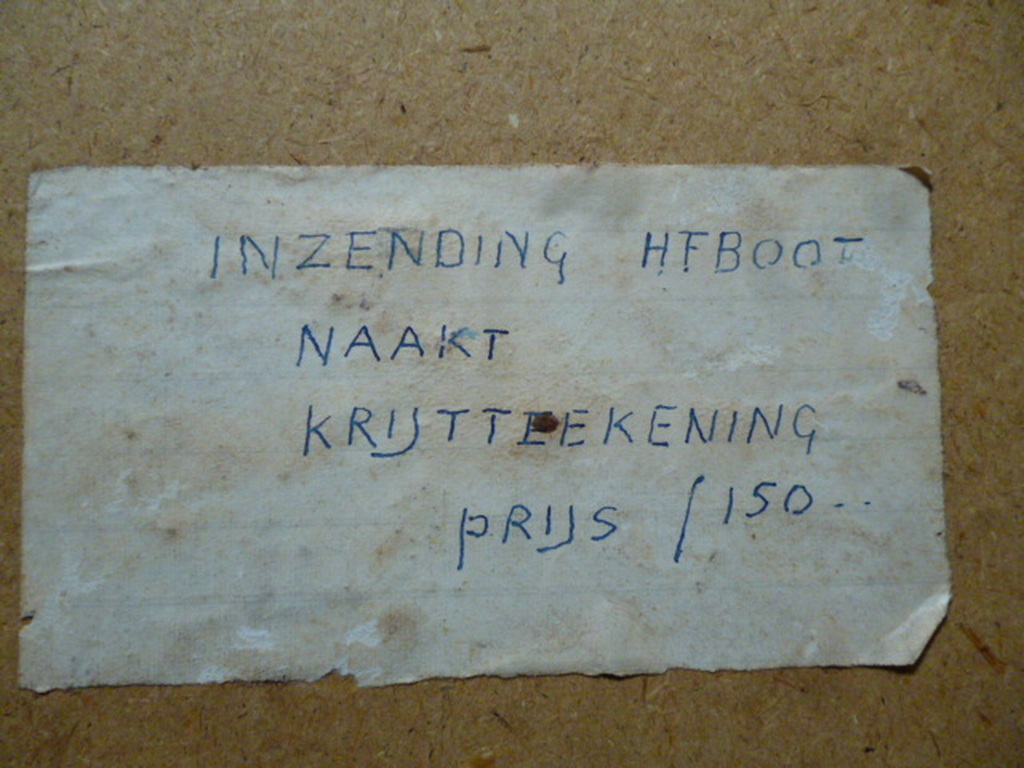 INZENDING H.F.BOOT
NAAKT
KRIJTTEEKENING
PRIJS ƒ150--